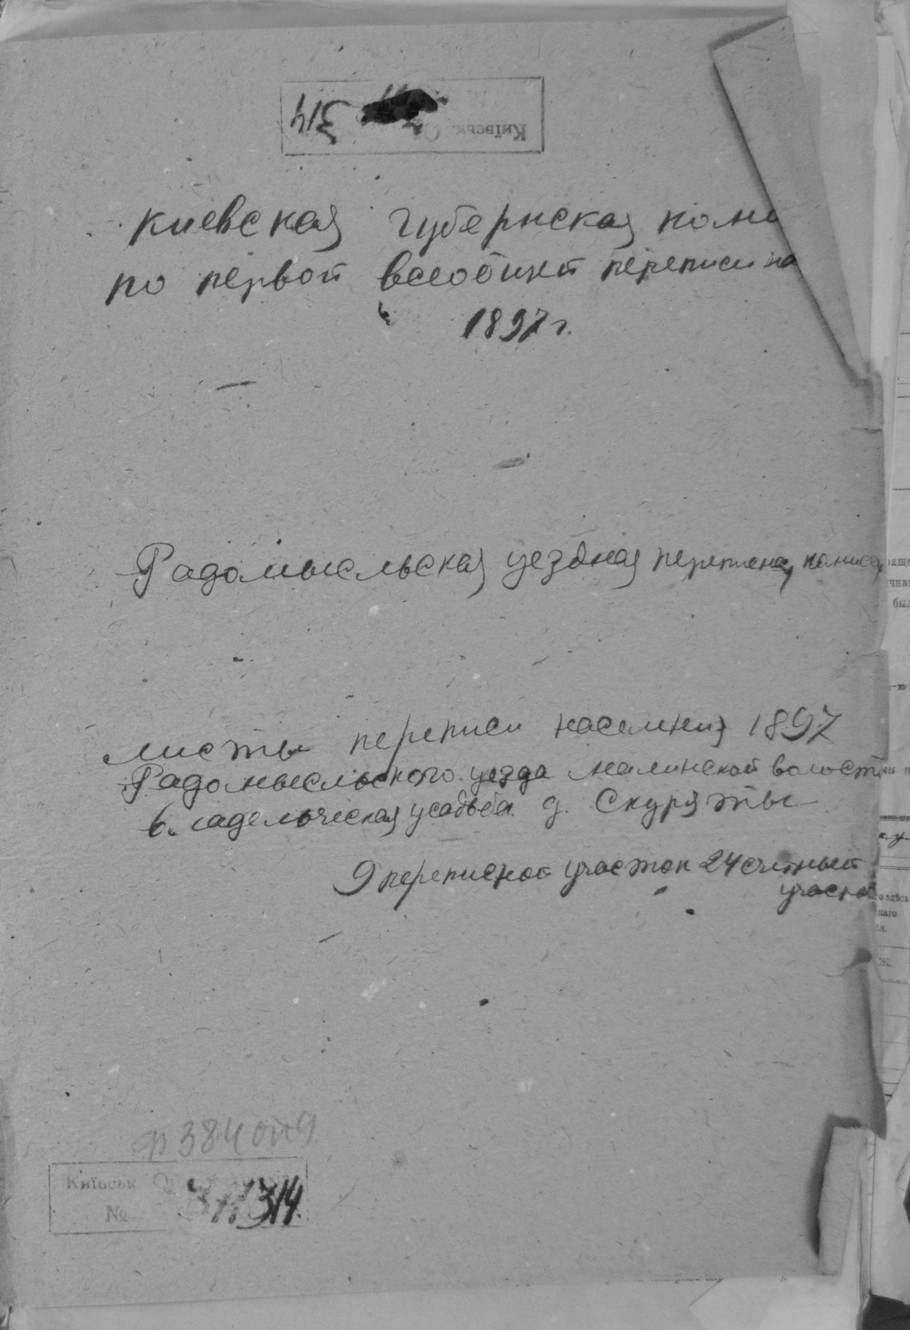 314
Київськ О
Киевская губернская коми
по первой всеобщей переписи на
1897 г.
Радомысльская уездная перепсная комисс
Листы переписи населения 1897
Радомысльского уезда Малинской волости
владельческая усадьба д. Скураты
9 переписной участок 24 счетный
участок
ф 384 оп 9
Київськ О
№ 314